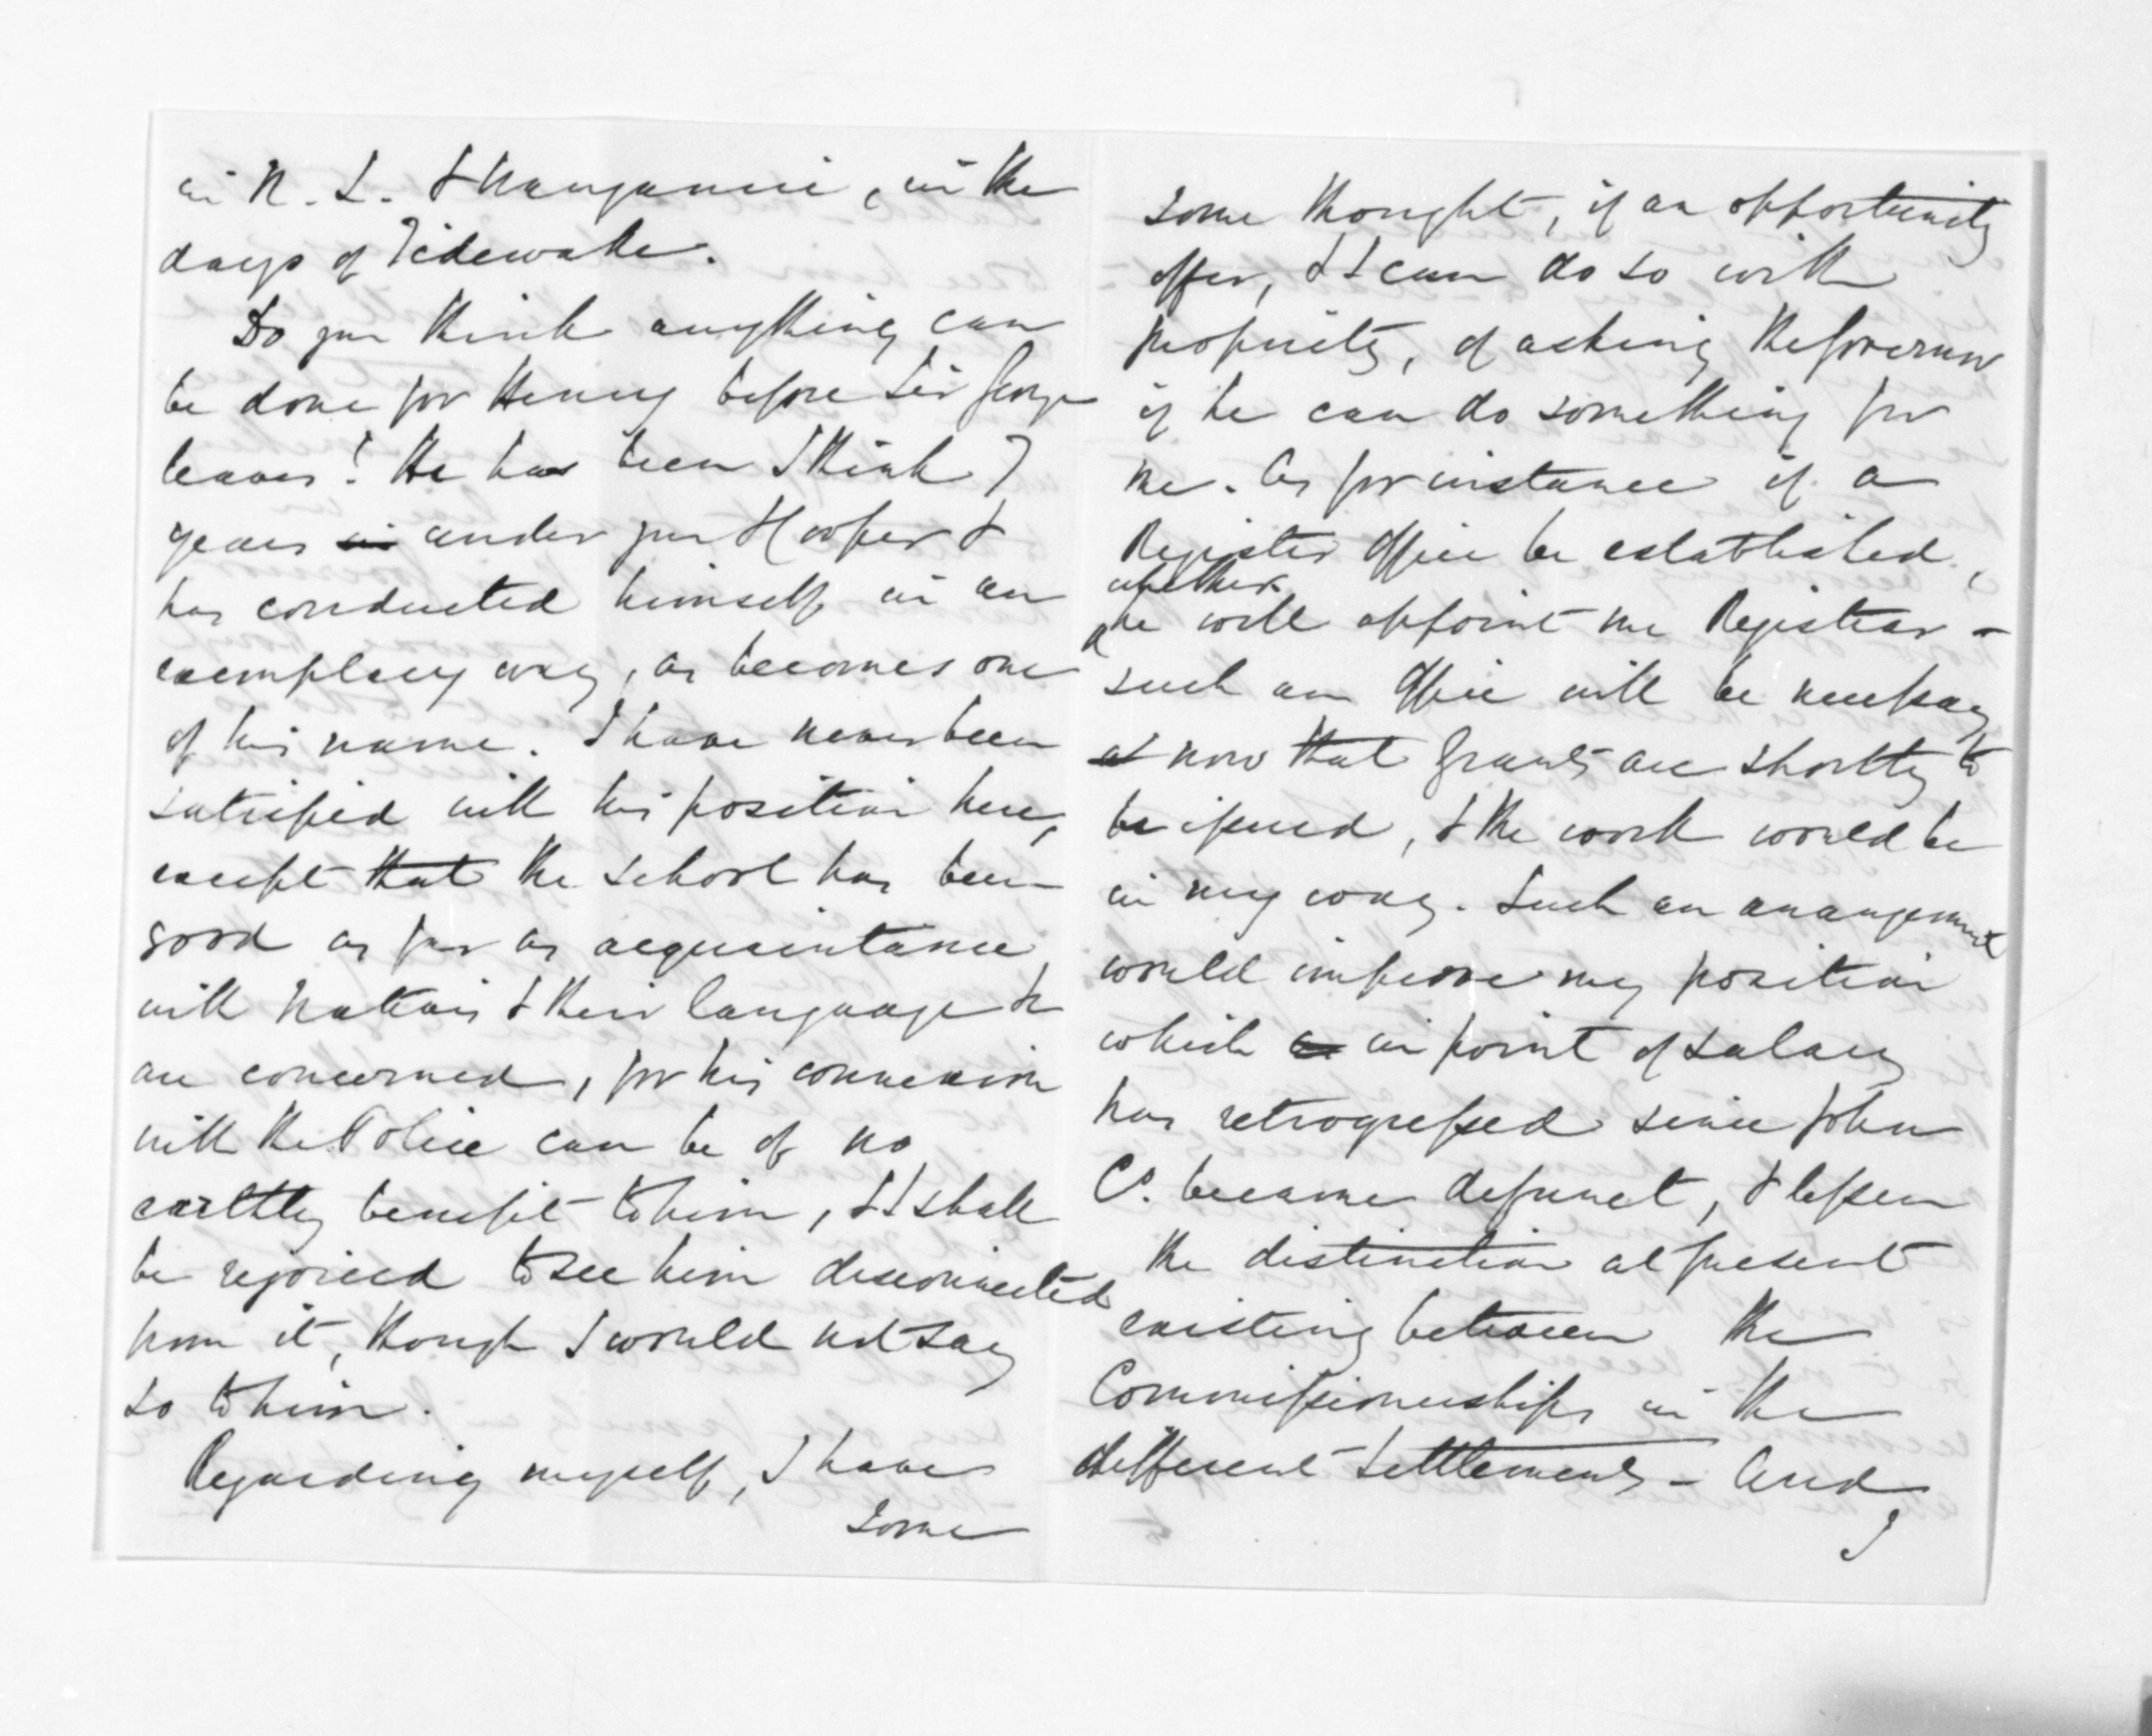 in N. Z. & Wanganui, in the
days of Tidewake.
Do you think anything can
be done for Henry before Sir George
leaves! He has been I think 7
years in under you & Cooper &
has conducted himself in an
exemplary way, as becomes one
of his name. I have never been
satisfied with his position here,
except that the school has been
good as far as acquaintance
with Natives & their language &c
are concerned, for his connexion
with the Police can be of no
earthly benefit to him, & I shall
be rejoiced to see him disconnected
from it, though I would not say
so to him.
Regarding myself, I have
some
some thought, if an opportunity
offer, & I can do so with
propriety, of asking the Governor
if he can do something for
me. As for instance if a
Register Office be established,
whether
he will appoint me Registrar -
such an Office will be necessary
at now that Grants are shortly to
be issued, & the work would be
in my way. Such an arrangement
would improve my position
which in point of salary
has retrogressed since John
C. became defunct, & lessen
the distinction at present
existing between the
Commissionerships in the
different Settlements - And
I